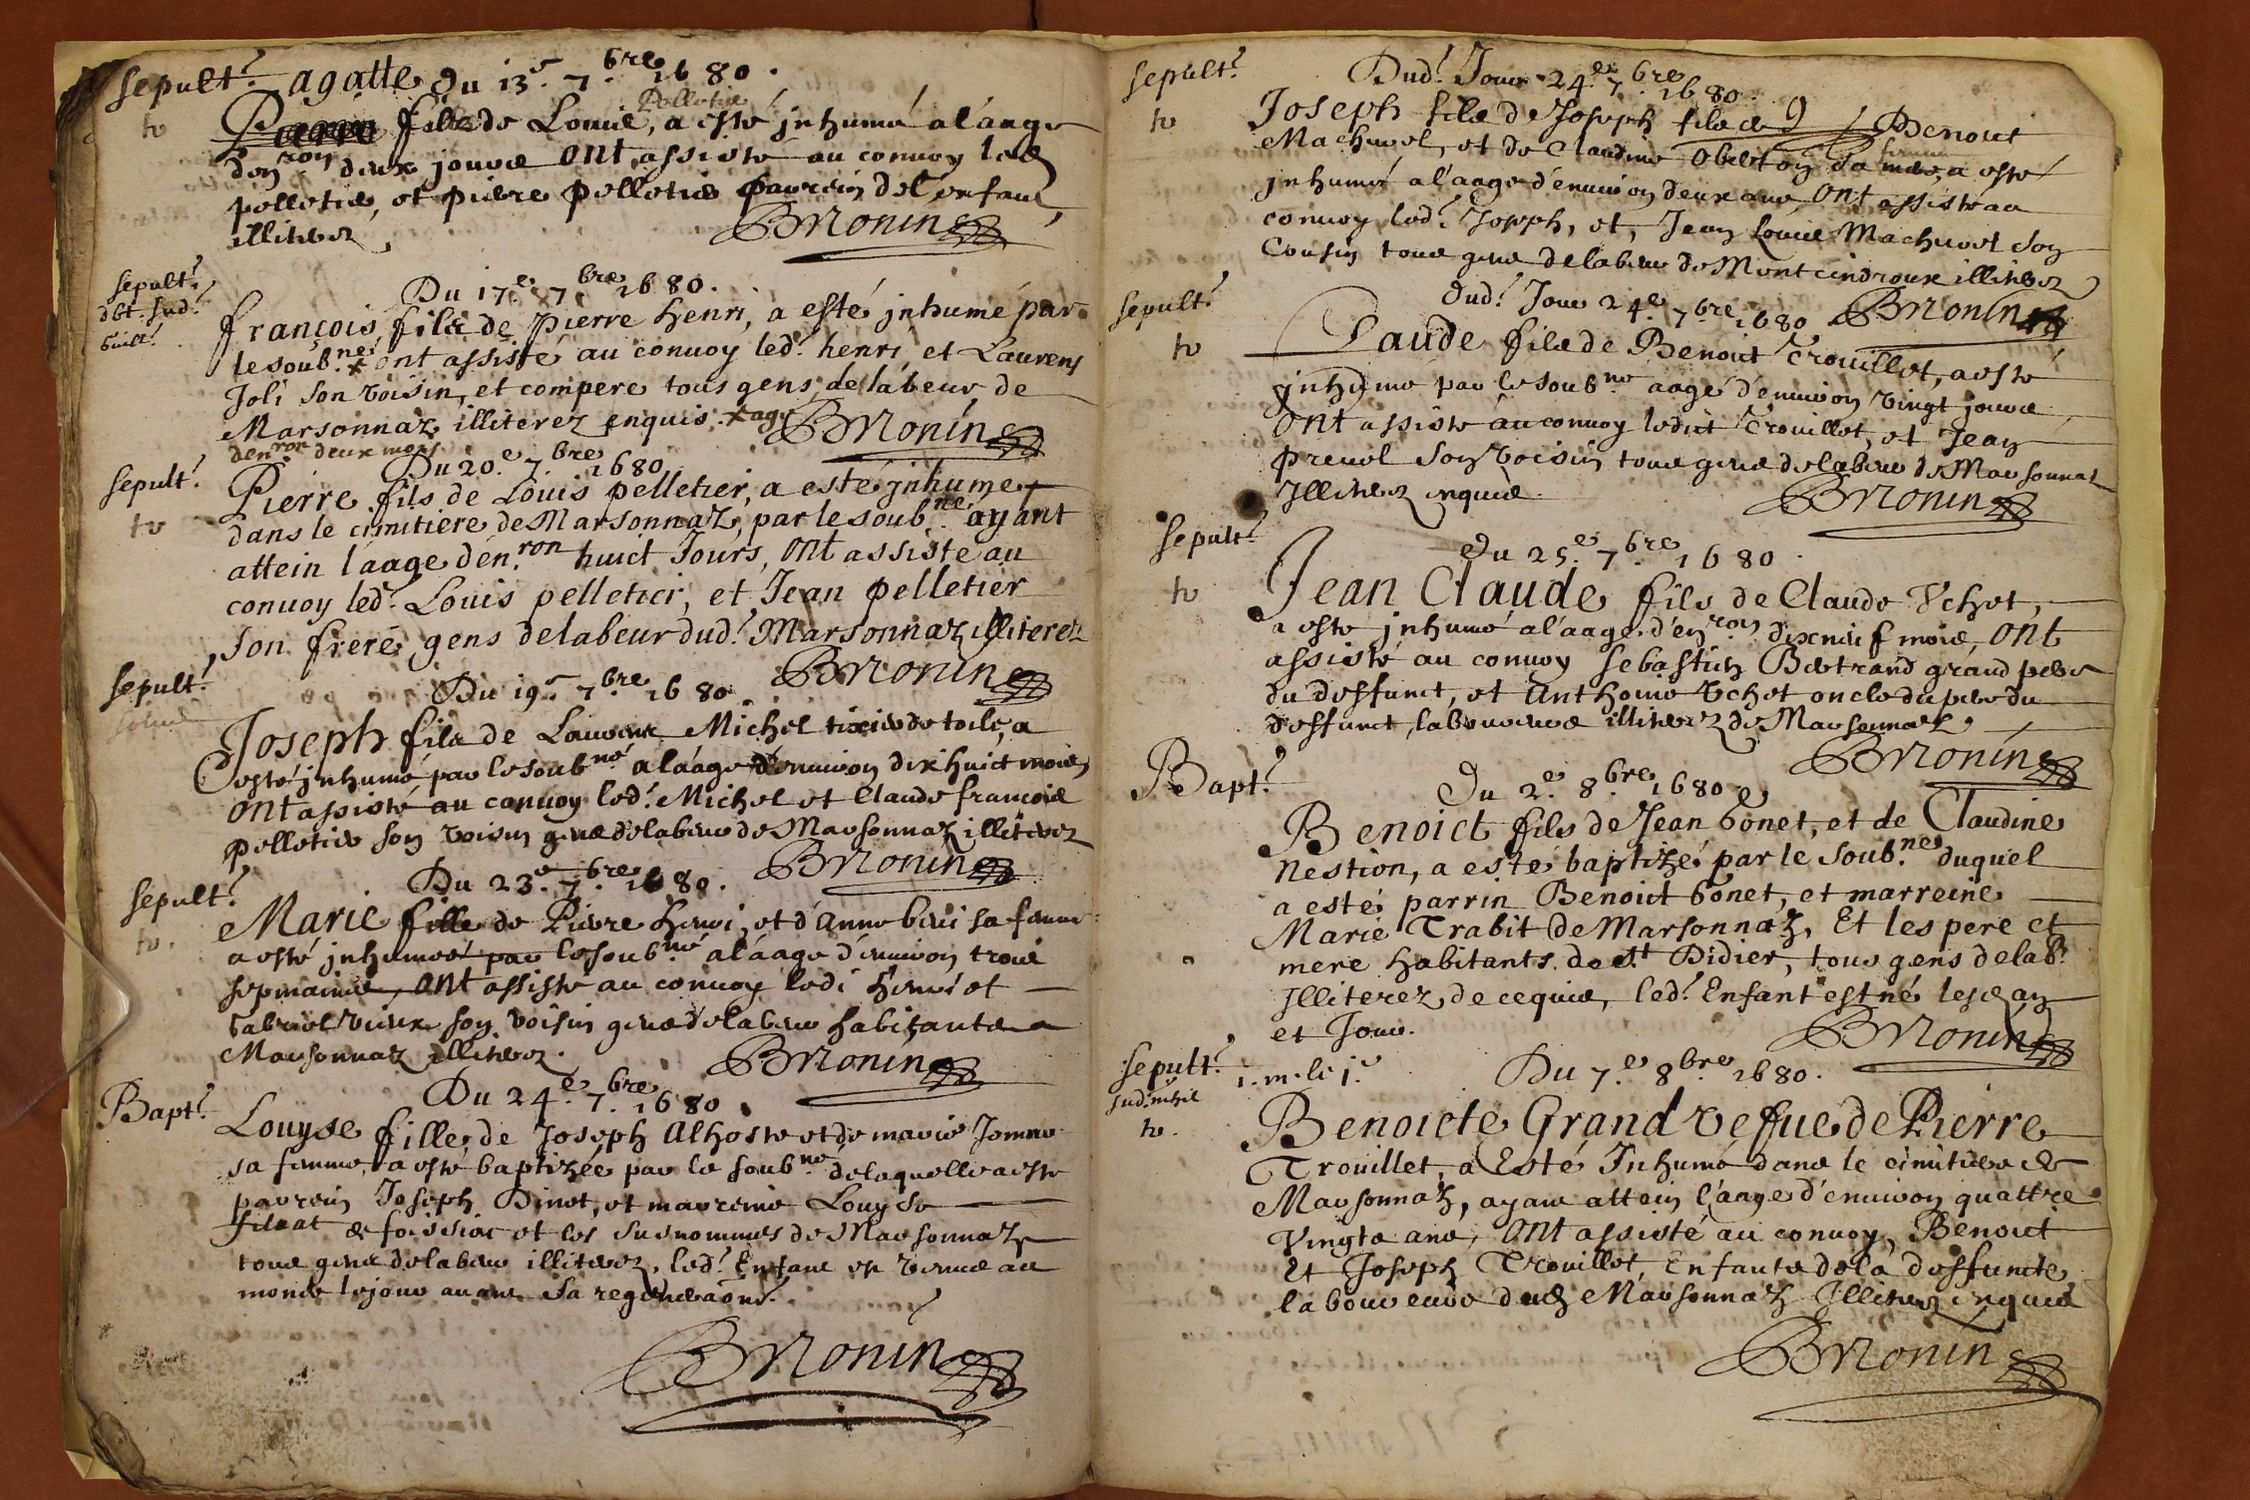 sepult.^e agatte du 13.^e 7.^bre 1680.
to Pierre fille de Louis Pelletier, a esté jnhumé a l'aage
d'en^ron deux jours ont assisté au convoy led.
pelletier, et pierre pelletier parrein de l'enfant
illiterez
BMonin
sepult.^e
dbt. sud.^t
Du 17.^e 7.^bre 1680.
françois fils de pierre henri, a esté jnhumé par
le soub.^né x ont assisté au convoy led.^t henri et Laurens
Joli son voisin, et compere tous gens de labeur de
Marsonnaz illiterez enquis. x agé
BMonin
den^ron deux mois
sepult.^e Du 20.^e 7.^bre 1680
to Pierre fils de Louis pelletier, a esté jnhumé
dans le cimitiere de Marsonnaz, par le soub.^né ayant
attein l'aage d'en.^ron huict Jours, ont assisté au
convoy led.^t Louis pelletier, et Jean pelletier
son frere, gens de labeur dud.^t Marsonnaz illiterez
BMonin
sepult.^e Du 19.^e 7.^bre 1680
Joseph fils de Laurent Michel tixier de toile, a
esté jnhumé par le soub^né a l'aage d'environ dix huict mois,
ont assisté au convoy led.^t Michel et Claude françois
pelletier son voisin gens de labeur de Marsonnaz illiterez
BMonin
sepult.^e Du 23.^e 7.^bre 1680.
to. Marie fille de Pierre henri, et d'anne sa femme
a esté jnhumée par le soub^né a l'aage d'environ trois
sepmaines, ont assisté au convoy ledi henri et
son voisin gens de labeur habitants a
Marsonnaz illiterez.
BMonin
Bapt.^e Du 24.^e 7.^bre 1680
Louyse fille de Joseph Alhoste et de marie
sa femme, a esté baptizée par le soub^né de laquelle a esté
parrein Joseph Dinet, et marreine Louyse
de foissiat et les susnommés de Marsonnaz
tous gens de labeur illiterez, led.^t Enfant est venu au
monde le jour avant sa regeneraõn.
BMonin
sepult.^e Dud.^t Jour 24.^e 7.^bre 1680.
to Joseph fils de Joseph fils de Benoict
Machurel, et de Claudine sa femme, a esté
jnhumé a l'aage d'environ deux ans, ont assisté au
convoy led.^t Joseph, et, Jean Louis Machurel son
Cousin tous gens de labeur de Montcindroux illiterez
BMonin
sepult.^e dud.^t Jour 24.^e 7.^bre 1680
to Claude fils de Benoict Trouillet, a esté
jnhumé par le soub^né aagé d'environ vingt jours
ont assisté au convoy ledict Trouillet, et Jean
prevel son voisin tous gens de labeur de Marsonnaz
Illiterez enquis.
BMonin
sepult.^e Du 25.^e 7.^bre 1680.
to Jean Claude fils de Claude Vchet,
a esté jnhumé a l'aage d'en^ron dixneuf mois, ont
assisté au convoy sebastien Bertrand grand pere
du deffunct, et Anthoine Vchet oncle du pere du
deffunct, laboureurs illiterez de Marsonnaz
BMonin
Bapt.^e Du 2.^e 8.^bre 1680
Benoict fils de Jean Gonet, et de Claudine
Nestion, a esté baptizé par le soub.^né duquel
a esté parrin Benoict Gonet, et marreine
Marie Trabit de Marsonnaz, Et les pere et
mere habitants de s.^t Didier, tous gens de lab.^r
Illiterez, de ce quis, led.^t Enfant est né lesd. an
et Jour.
BMonin
sepult.^e Du 7.^e 8.^bre 1680.
to. Benoicte Grand vefue de Pierre
Trouillet, a Esté Inhumé dans le cimitiere de
Marsonnaz, ayant attein l'aage d'environ quattre
Vingts ans, ont assisté au convoy, Benoict
Et Joseph Trouillet, Enfants de la deffuncte
laboureurs dud. Marsonnaz Illiterez enquis
BMonin